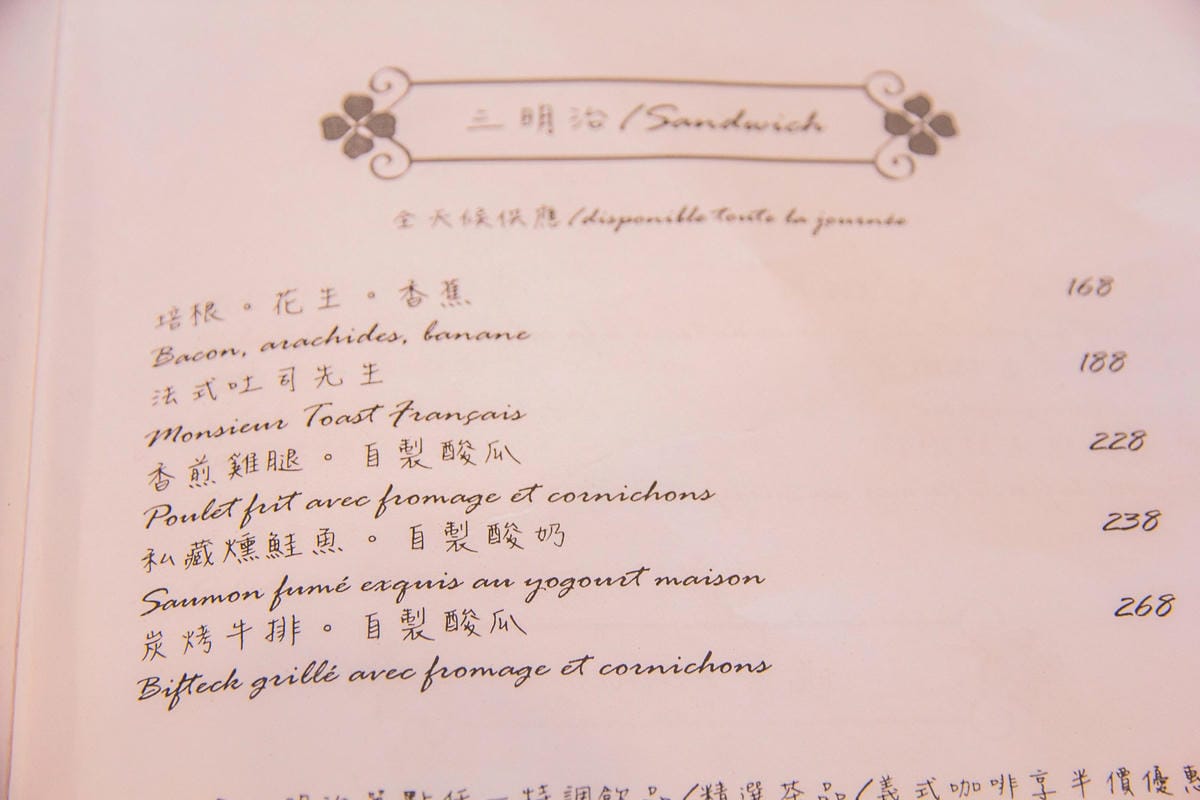 三明治/Sandwich
全天候供應/disponible toute la journée
培根。花生。香蕉 168
Bacon, arachides, banane
法式吐司先生 188
Monsieur Toast Français
香煎雞腿。自製酸瓜 228
Poulet frit avec fromage et cornichons
私藏燻鮭魚。自製酸奶 238
Saumon fumé exquis au yogourt maison
炭烤牛排。自製酸瓜 268
Bifteck grillé avec fromage et cornichons
特調飲品/精選茶品/義式咖啡享半價優惠